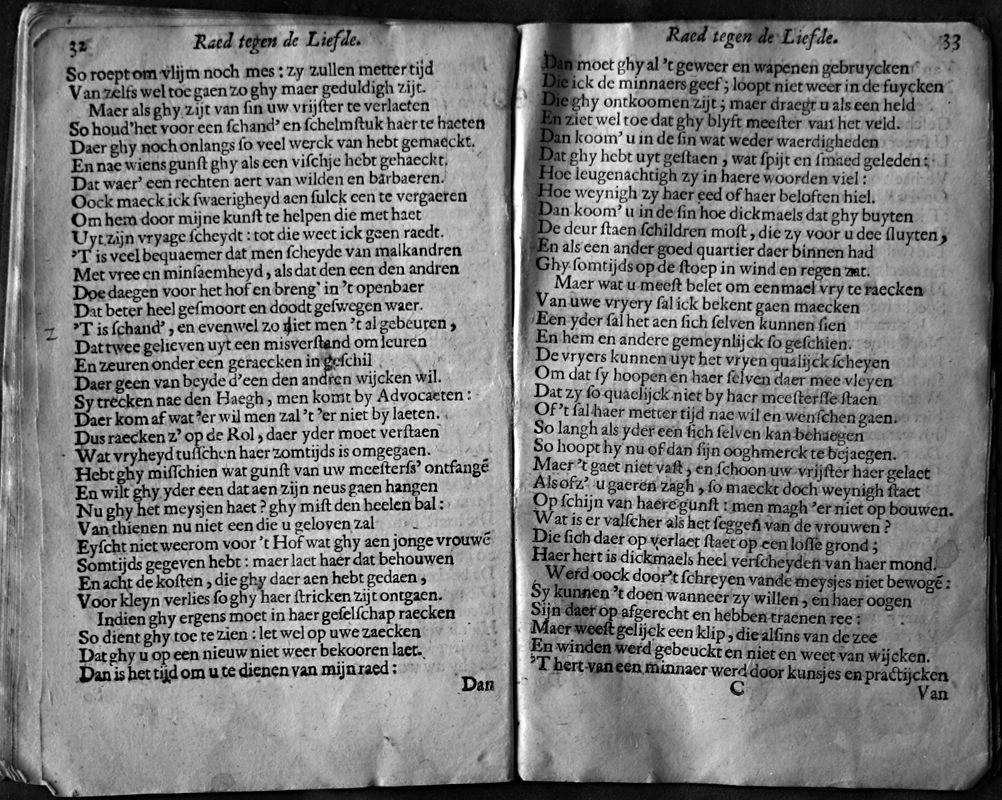 32 Raed tegen de Liefde.
So roept om vlijm noch mes : zy zullen metter tijd
Van zelfs wel toe gaen zo ghy maer geduldigh zijt.
Maer als ghy zijt van ſin uw vrijſter te verlaeten
So houd'het voor een ſchand' en ſchelmſtuk haer te haeten
Daer ghy noch onlangs ſo veel werck van hebt gemaeckt.
En nae wiens gunſt ghy als een viſchje hebt gehaeckt.
Dat waer' een rechten aert van wilden en barbaeren.
Oock maeck ick ſwaerigheyd aen ſulck een te vergaeren
Om hem door mijne kunſt te helpen die met haet
Uyt zijn vryage ſcheydt : tot die weet ick geen raedt.
'T is veel bequaemer dat men ſcheyde van malkandren
Met vree en minſaemheyd, als dat den een den andren
Doe daegen voor het hof en breng' in 't openbaer
Dat beter heel geſmoort en doodt geſwegen waer.
'T is ſchand', en evenwel zo ziet men 't al gebeuren,
Dat twee gelieven uyt een misverſtand om leuren
En zeuren onder een geraecken in geſchil
Daer geen van beyde d'een den andren wijcken wil.
Sy trecken nae den Haegh, men komt by Advocaeten :
Daer kom af wat 'er wil men zal 't 'er niet by laeten.
Dus raecken z' op de Rol, daer yder moet verſtaen
Wat vryheyd tuſſchen haer zomtijds is omgegaen.
Hebt ghy miſſchien wat gunſt van uw meeſterſs' ontfangẽ
En wilt ghy yder een dat aen zijn neus gaen hangen
Nu ghy het meysjen haet ? ghy miſt den heelen bal :
Van thienen nu niet een die u geloven zal
Eyſcht niet weerom voor 't Hof wat ghy aen jonge vrouwẽ
Somtijds gegeven hebt : maer laet haer dat behouwen
En acht de koſten, die ghy daer aen hebt gedaen,
Voor kleyn verlies ſo ghy haer ſtricken zijt ontgaen.
Indien ghy ergens moet in haer geſelſchap raecken
So dient ghy toe te zien : let wel op uwe zaecken
Dat ghy u op een nieuw niet weer bekooren laet.
Dan is het tijd om u te dienen van mijn raed :
Dan
Raed tegen de Liefde. 33
Dan moet ghy al 't geweer en wapenen gebruycken
Die ick de minnaers geef; loopt niet weer in de fuycken
Die ghy ontkoomen zijt; maer draegt u als een held
En ziet wel toe dat ghy blyft meeſter van het veld.
Dan koom' u in de ſin wat weder waerdigheden
Dat ghy hebt uyt geſtaen, wat ſpijt en ſmaed geleden :
Hoe leugenachtigh zy in haere woorden viel :
Hoe weynigh zy haer eed of haer beloften hiel.
Dan koom' u in de ſin hoe dickmaels dat ghy buyten
De deur ſtaen ſchildren moſt, die zy voor u dee ſluyten,
En als een ander goed quartier daer binnen had
Ghy ſomtijds op de ſtoep in wind en regen zat.
Maer wat u meeſt belet om eenmael vry te raecken
Van uwe vryery ſal ick bekent gaen maecken
Een yder ſal het aen ſich ſelven kunnen ſien
En hem en andere gemeynlijck ſo geſchien.
De vryers kunnen uyt het vryen qualijck ſcheyen
Om dat ſy hoopen en haer ſelven daer mee vleyen
Dat zy ſo quaelijck niet by haer meeſterſſe ſtaen
Of 't ſal haer metter tijd nae wil en wenſchen gaen.
So langh als yder een ſich ſelven kan behaegen
So hoopt hy nu of dan ſijn ooghmerck te bejaegen.
Maer 't gaet niet vaſt, en ſchoon uw vrijſter haer gelaet
Als ofz' u gaeren zagh, ſo maeckt doch weynigh ſtaet
Op ſchijn van haere gunſt : men magh 'er niet op bouwen.
Wat is er valſcher als het ſeggen van de vrouwen ?
Die ſich daer op verlaet ſtaet op een loſſe grond;
Haer hert is dickmaels heel verſcheyden van haer mond.
Werd oock door't ſchreyen vande meysjes niet bewogẽ :
Sy kunnen 't doen wanneer zy willen, en haer oogen
Sijn daer op afgerecht en hebben traenen ree :
Maer weeſt gelijck een klip, die alſins van de zee
En winden werd gebeuckt en niet en weet van wijcken.
'T hert van een minnaer werd door kunsjes en practijcken
C Van